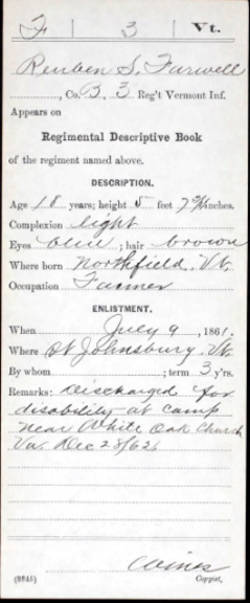 F | 3 | Vt.
Reuben S. Farwell
, Co. B, 3 Reg't Vermont Inf.
Appears on
Regimental Descriptive Book
of the regiment named above.
DESCRIPTION.
Age 18 years; height 5 feet 7 3/4 inches.
Complexion light
Eyes blue ; hair brown
Where born Northfield, Vt.
Occupation Farmer
ENLISTMENT.
When July 9, 1861.
Where St Johnsbury, Vt.
By whom ; term 3 y'rs.
Remarks: Discharged for
disability at camp
near White Oak Church
Va. Dec 28/62
Copyist.